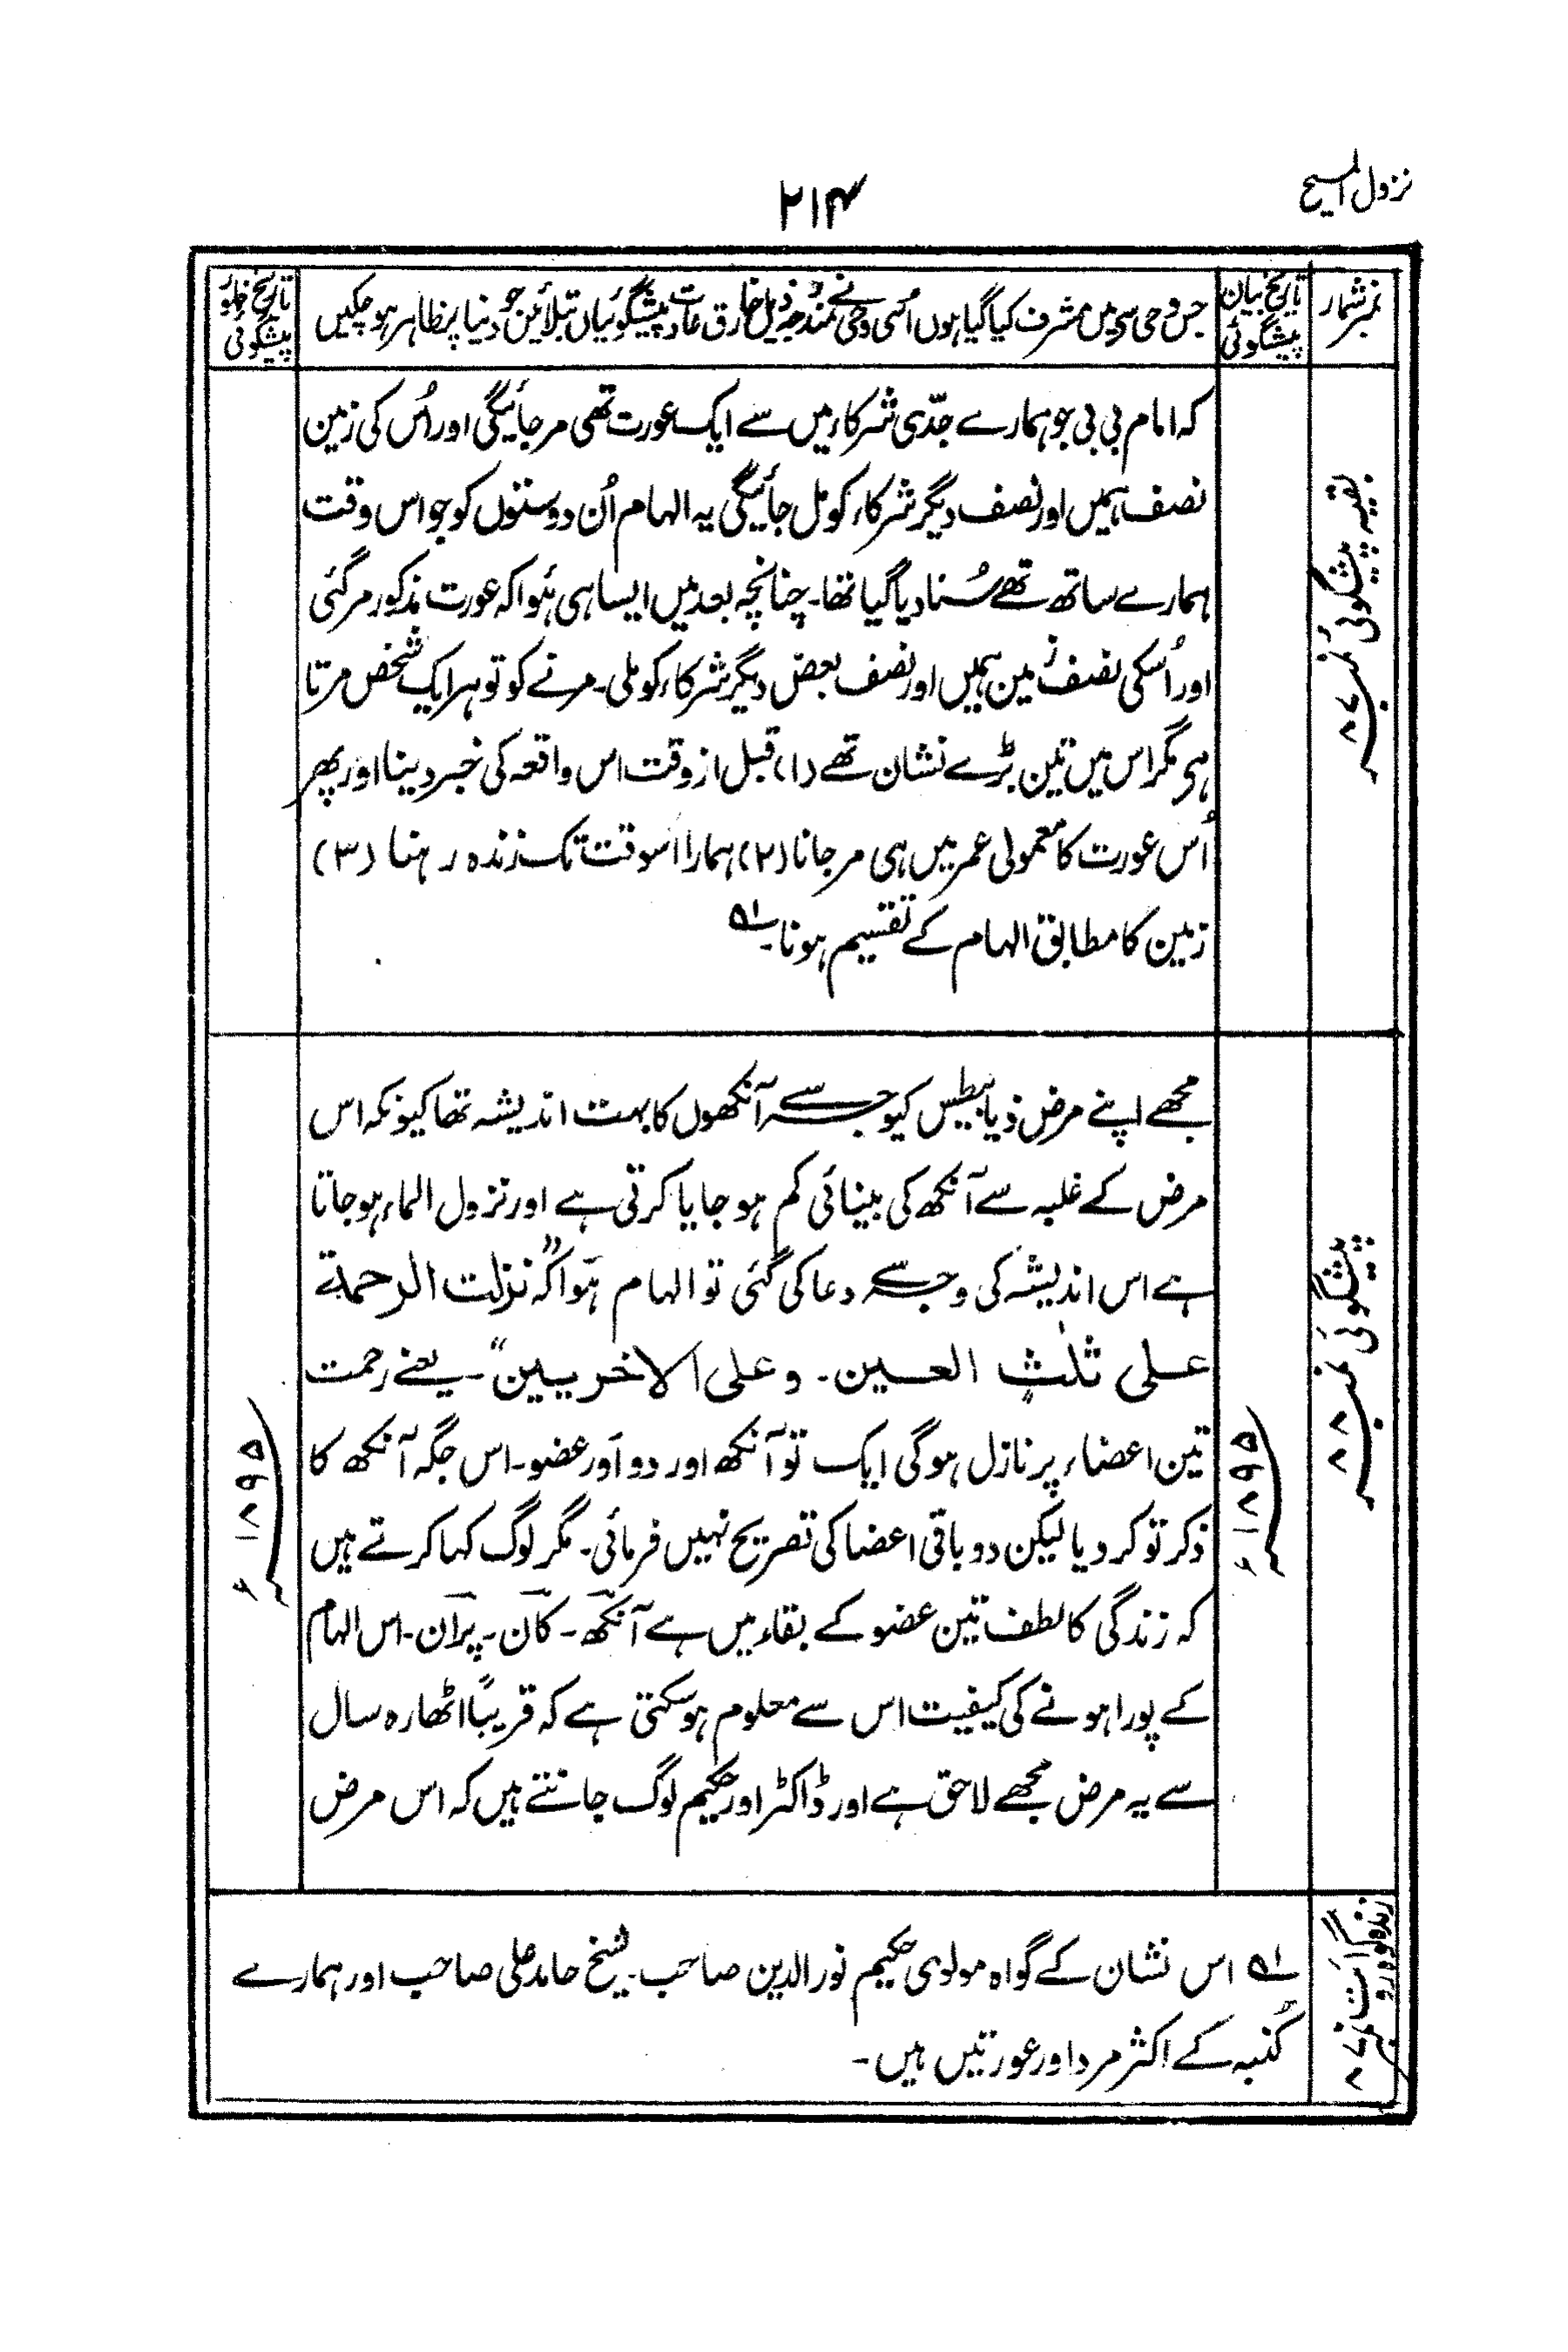 نزول المسیح
۲۱۴
نمبر شمار
تاریخ بیان پیشگوئی
جس وحی سے میں مشرف کیا گیا ہوں اُسی وحی نے مندرجہ ذیل خارق عادت پیشگوئیاں بتلائیں جو دنیا پر ظاہر ہو چکیں
تاریخ ظہور پیشگوئی
بقیہ پیشگوئی نمبر ۸۷
کہ امام بی بی جو ہمارے جدّی شرکاء میں سے ایک عورت تھی مر جائیگی اور اُس کی زمین
نصف ہمیں اور نصف دیگر شرکاء کو مل جائیگی یہ الہام اُن دوستوں کو جو اس وقت
ہمارے ساتھ تھے سُنا دیا گیا تھا۔ چنانچہ بعد میں ایسا ہی ہوا کہ عورت مذکور مر گئی
اور اُسکی نصف زمین ہمیں اور نصف بعض دیگر شرکاء کو ملی۔ مرنے کو تو ہر ایک شخص مرتا
ہی مگر اس میں تین بڑے نشان تھے (۱) قبل از وقت اس واقعہ کی خبر دینا اور پھر
اُس عورت کا معمولی عمر میں ہی مر جانا (۲) ہمارا اسوقت تک زندہ رہنا (۳)
زمین کا مطابق الہام کے تقسیم ہونا۔ ۵۱
پیشگوئی نمبر ۸۸
۱۸۹۵ء
مجھے اپنے مرض ذیابیطس کیوجہ سے آنکھوں کا بہت اندیشہ تھا کیونکہ اس
مرض کے غلبہ سے آنکھ کی بینائی کم ہو جایا کرتی ہے اور نزول الماء ہو جاتا
ہے اس اندیشہ کی وجہ سے دعا کی گئی تو الہام ہوا کہ ”نزلت الرحمة
علی ثلٰث العین۔ و علی الاخریین“۔ یعنے رحمت
تین اعضاء پر نازل ہوگی ایک تو آنکھ اور دو اَور عضو۔ اس جگہ آنکھ کا
ذکر تو کر دیا لیکن دو باقی اعضا کی تصریح نہیں فرمائی۔ مگر لوگ کہا کرتے ہیں
کہ زندگی کا لطف تین عضو کے بقاء میں ہے آنکھ۔ کان۔ پران۔ اس الہام
کے پورا ہونے کی کیفیت اس سے معلوم ہو سکتی ہے کہ قریباً اٹھارہ سال
سے یہ مرض مجھے لاحق ہے اور ڈاکٹر اور حکیم لوگ جانتے ہیں کہ اس مرض
۱۸۹۵ء
زندہ گواہ رویت نمبر ۸۷
۵۱ اس نشان کے گواہ مولوی حکیم نور الدین صاحب۔ شیخ حامد علی صاحب اور ہمارے
کُنبہ کے اکثر مرد اور عورتیں ہیں۔